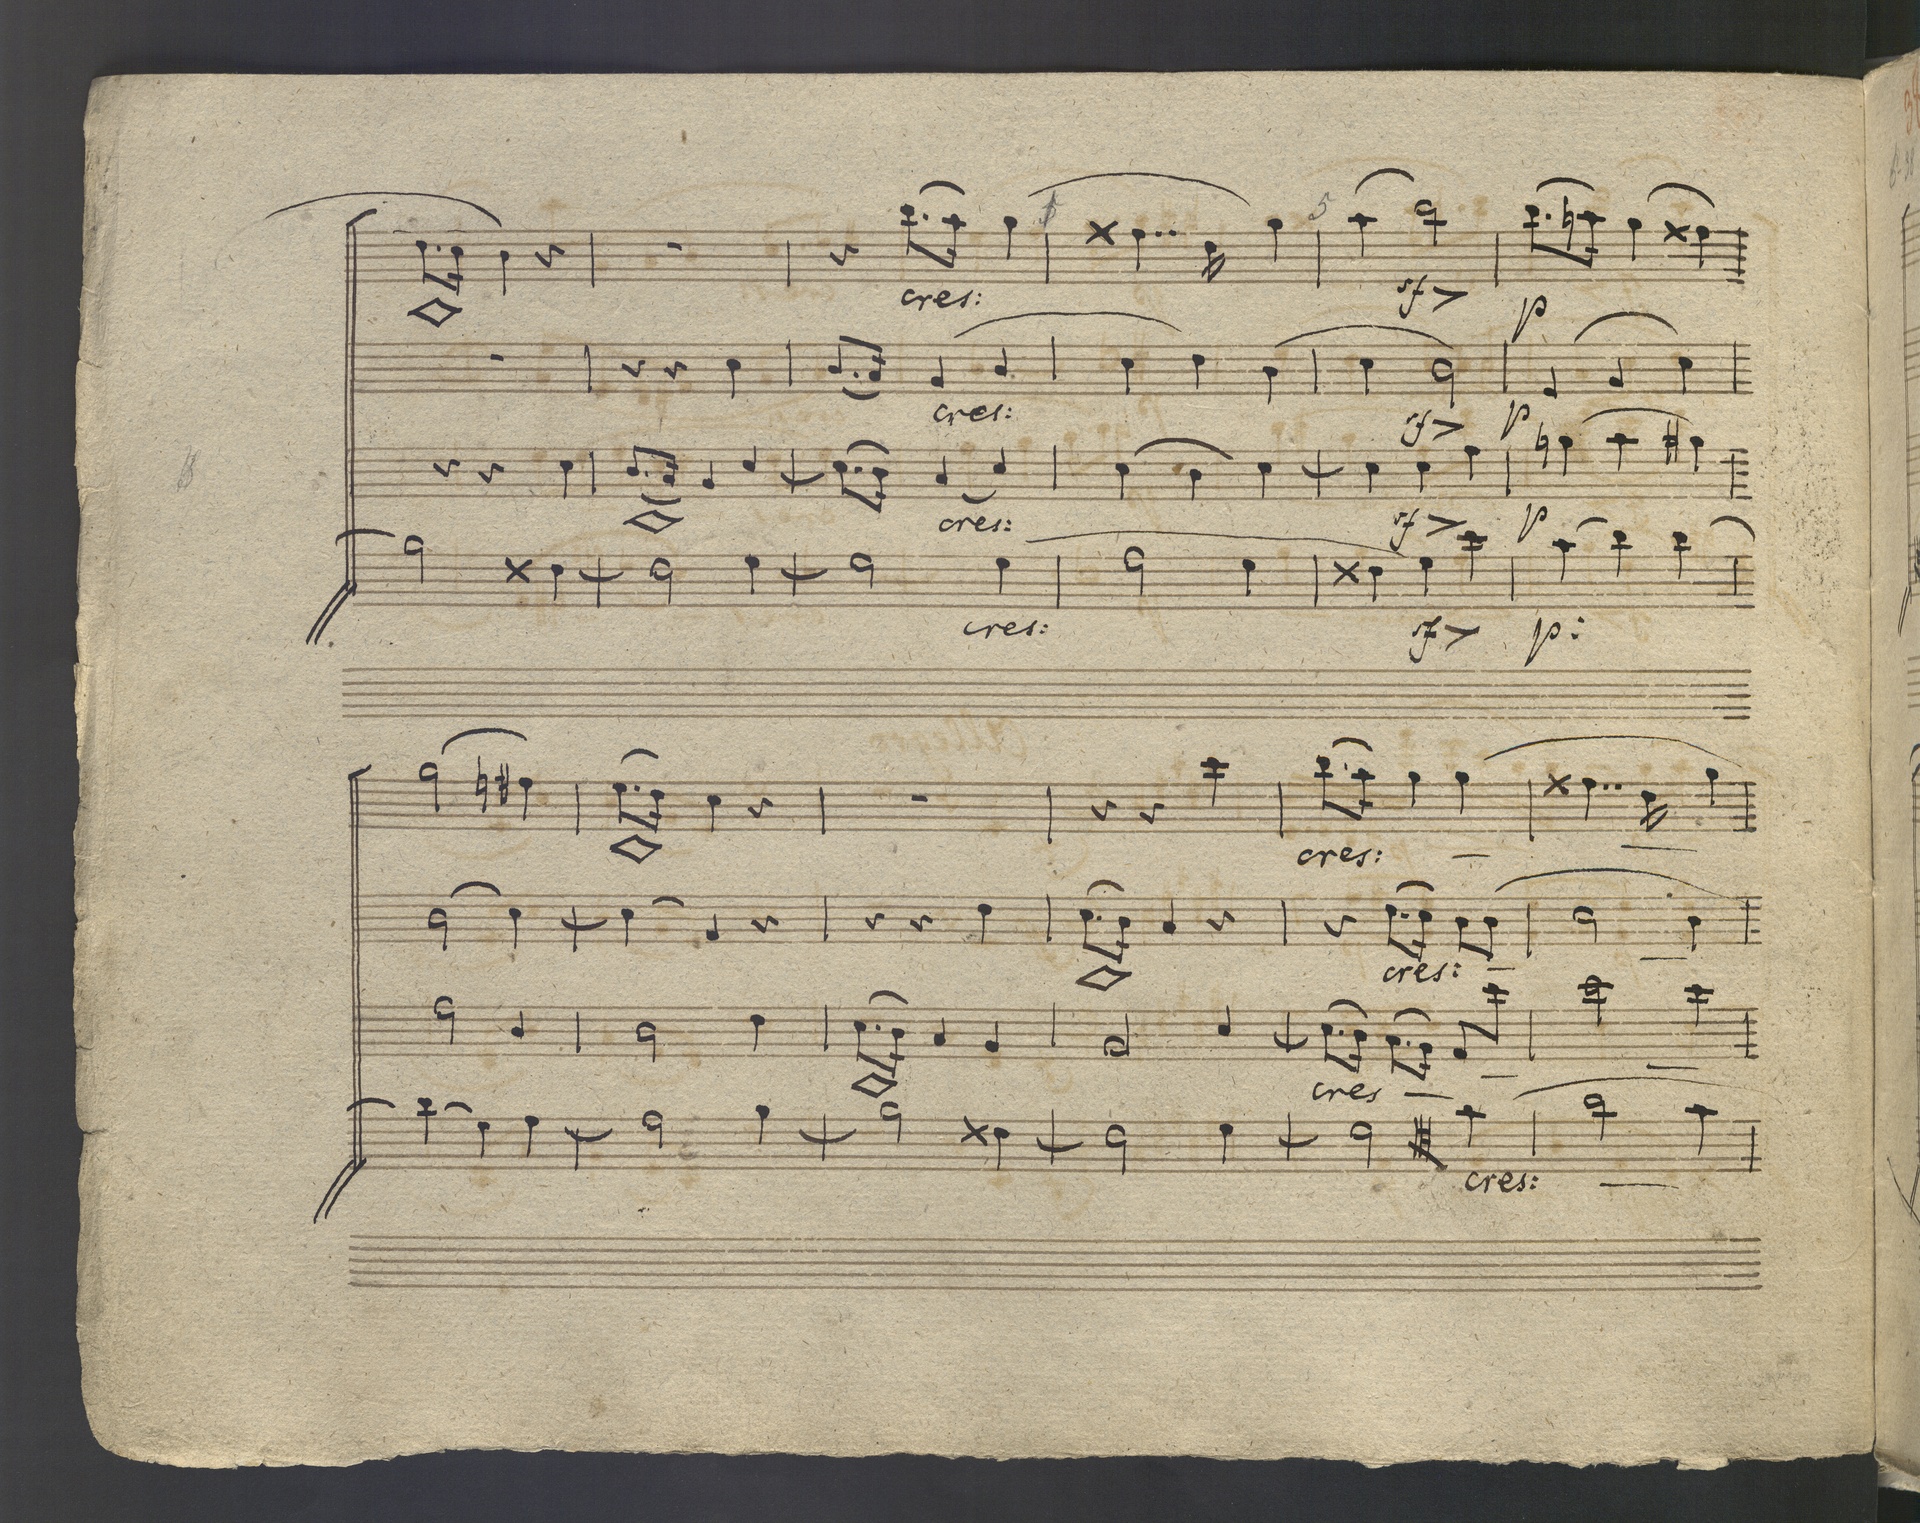 5
cres:
sf p
cres:
sf p
cres:
sf p
cres:
sf p:
cres:
cres:
cres
cres: